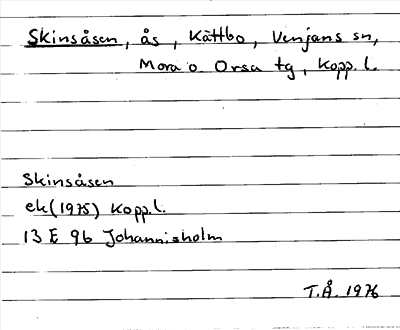 Skinsåsen, ås, Kättbo, Venjans sn,
Mora o. Orsa tg, Kopp. l.
Skinsåsen
ek(1975) Kopp.l.
13 E 9b Johannisholm
T.Å. 1976